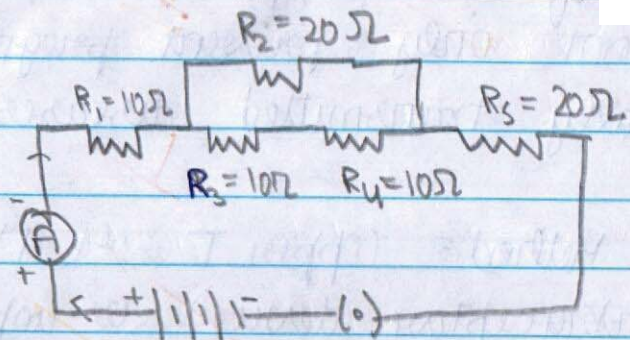 R₂ = 20 Ω
R₁ = 10Ω
R₅ = 20Ω
R₃ = 10Ω
R₄ = 10Ω
-
A
+
+
-
(•)